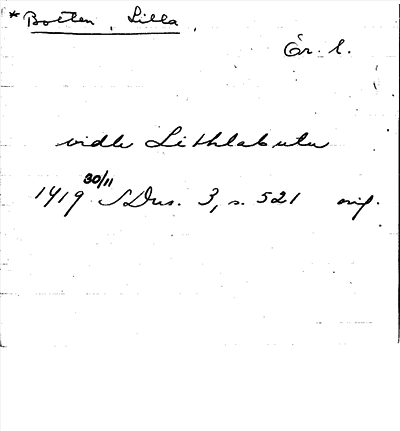 *Botten, Lilla,
Ör. l.
vidh Lithlabutn
1419 30/11 SDns. 3, s. 521 orig.